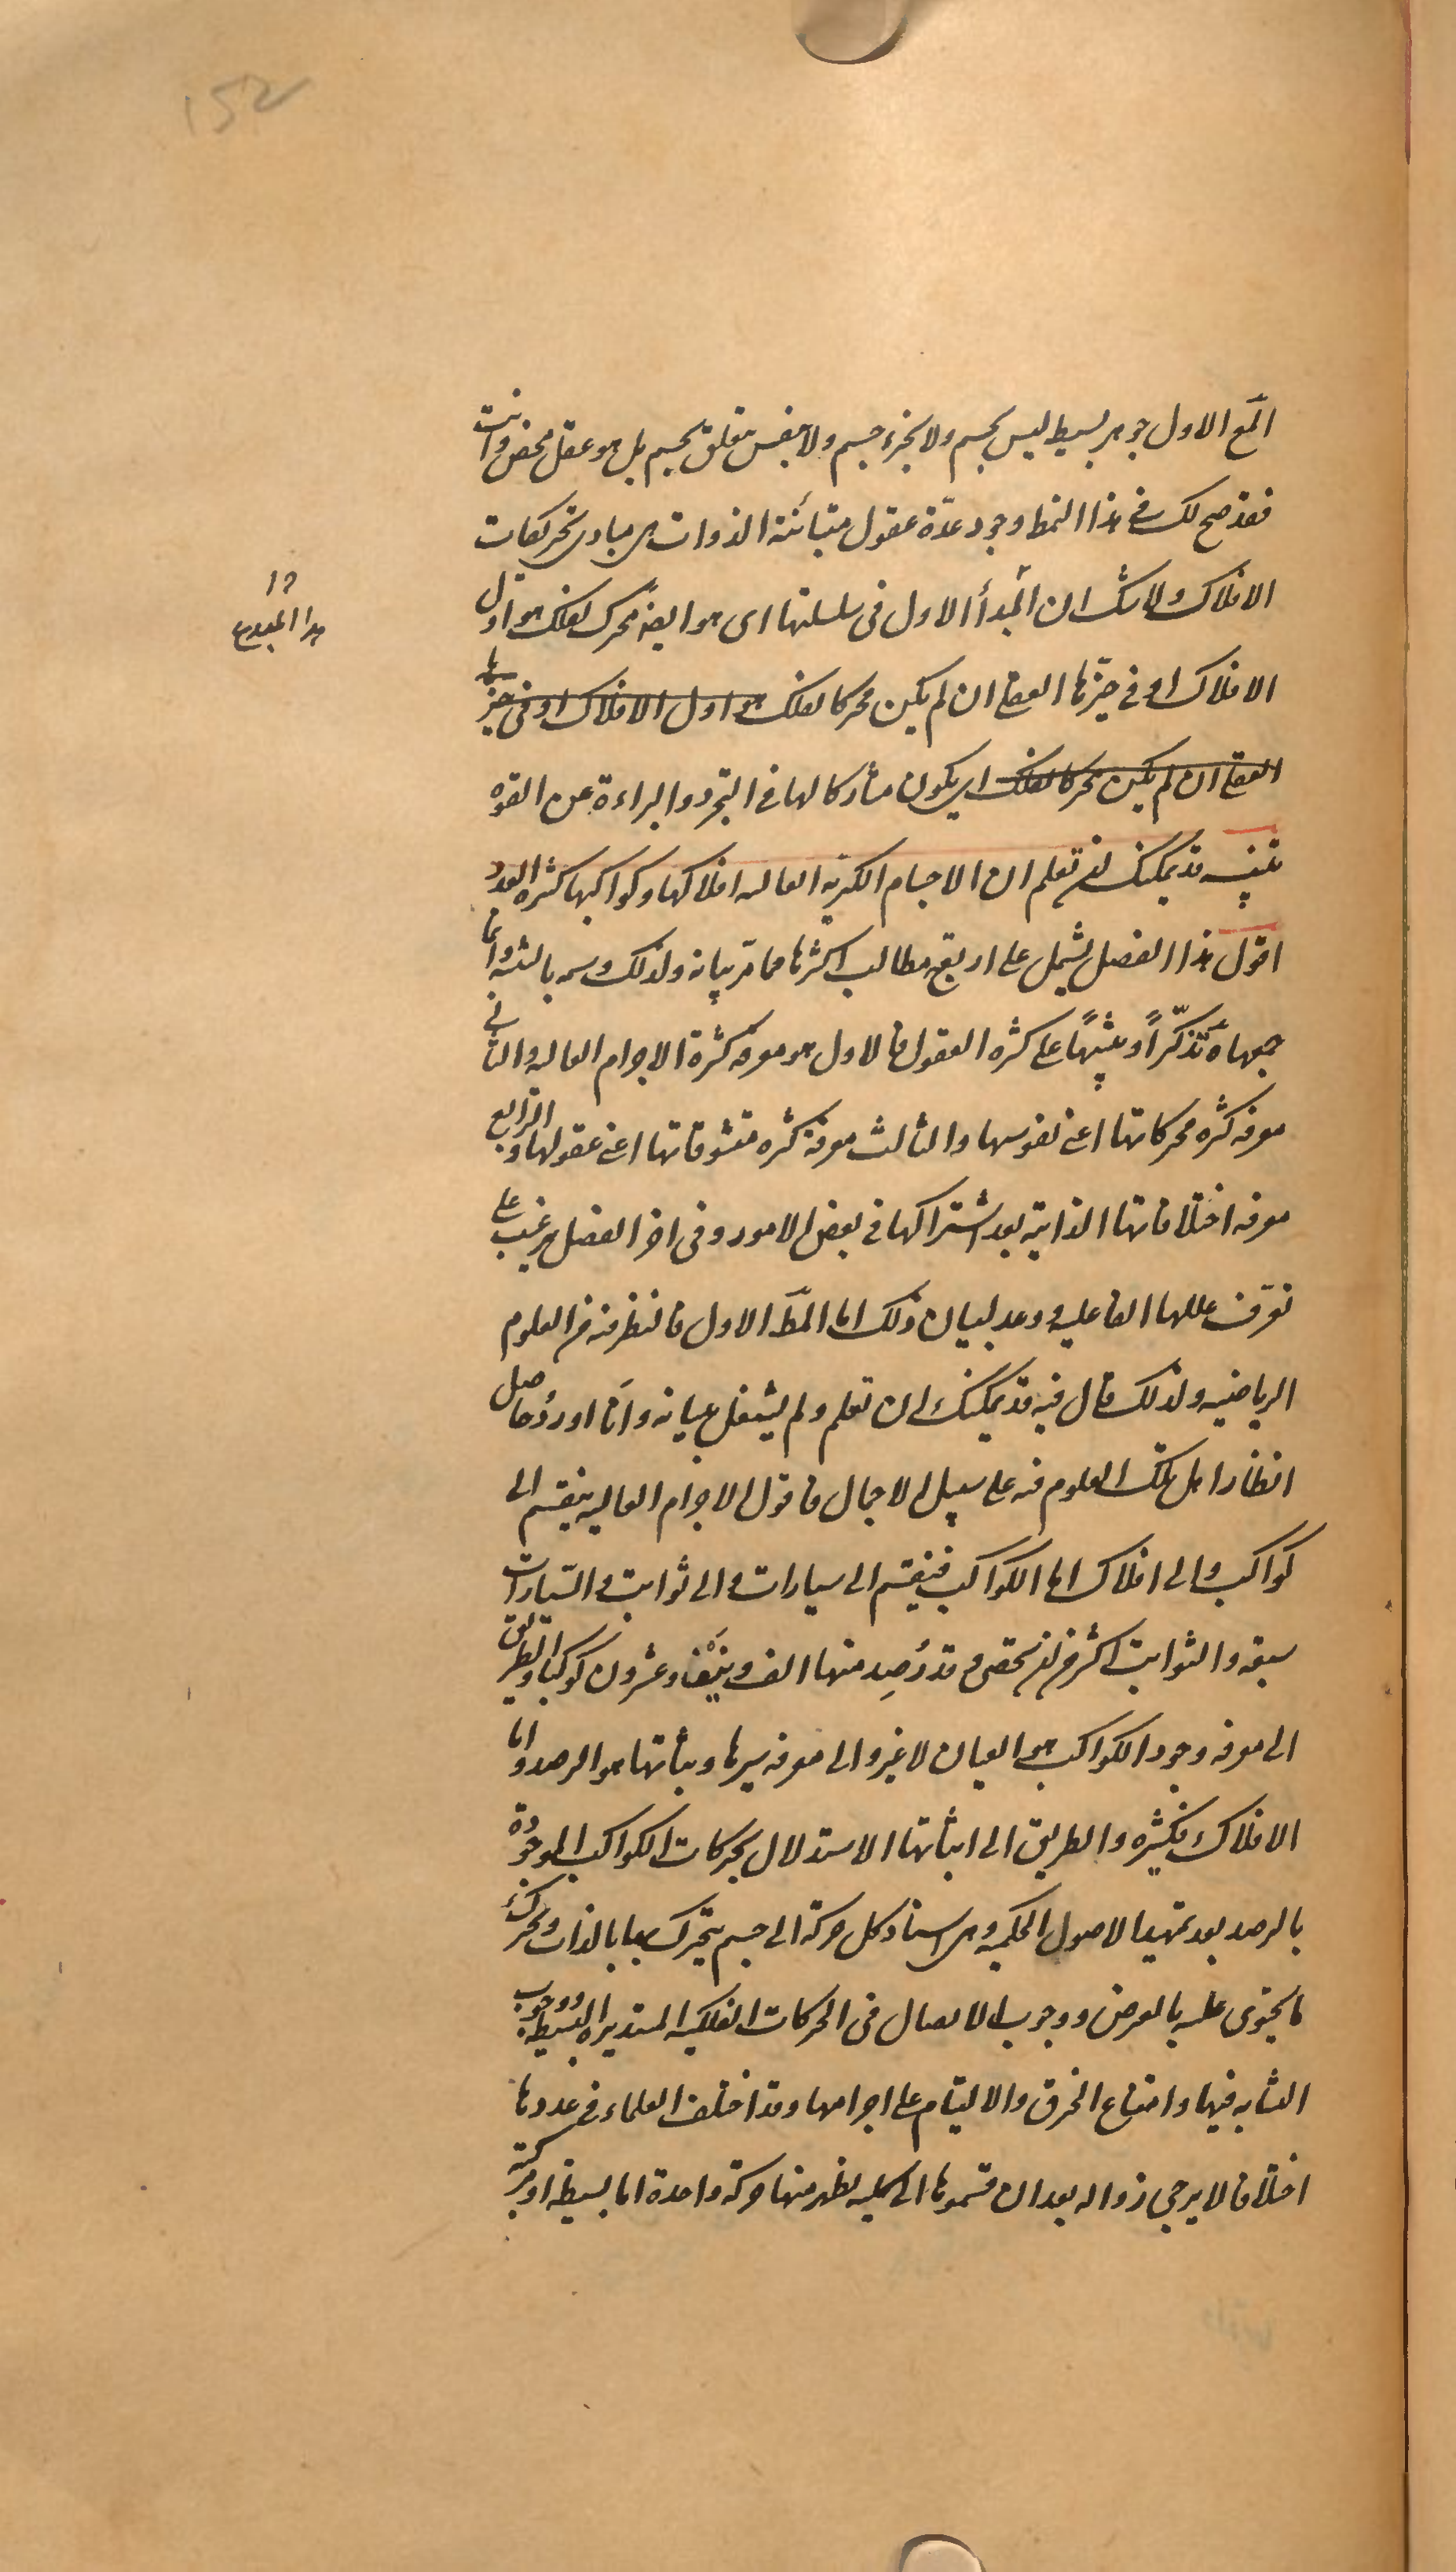 152
المبدع الاول جوهر بسيط ليس بجسم ولا بجزء جسم ولا بنفس تتعلق بجسم بل هو عقل محض وانت
فقد صح لك فى هذا النمط وجود عدّة عقول متبائنة الذوات هى مبادى تحريكات
الافلاك ولا شك ان المبدأ الاول فى سلسلتها اى هو ايضا محرك لفلك هو اول
الافلاك او فى حيّزها العقلى ان لم يكن محركا لفلك هو اول الافلاك او فى حيّزها
العقلى ان لم يكن محركا لفلك اى يكون مشاركا لها فى التجرد والبراءة عن القوه
هذا المبدع
تنبيه قد يمكنك ان تعلم ان الاجسام الكرية العاليه افلاكها وكواكبها كثيره العدد
اقول هذا الفصل يشتمل على اربعة مطالب اكثرها مما مرّ بيانه ولذلك وسمه بالتنبيه وانما
جمعها تذكّراً وتنبيهًا على كثره العقول فالاول هو معرفه كثرة الاجرام العاليه والثانى
معرفه كثره محركاتها اعنى نفوسها والثالث معرفة كثره متشوقاتها اعنى عقولها والرابع
معرفه اختلافاتها الذاتية بعد اشتراكها فى بعض الامور وفى اخر الفصل رغّب على
تعرّف عللها الفاعليه وعد لبيان ذلك اما المط الاول فالنظر فيه من العلوم
الرياضيه ولذلك قال فيه قد يمكنك ان تعلم ولم يشتغل ببيانه وانا اورد حاصل
انظار اهل تلك العلوم فيه على سبيل الاجمال فاقول الاجرام العاليه ينقسم الى
كواكب والى افلاك اما الكواكب فينقسم الى سيارات والى ثوابت والسّيارات
سبعه والثوابت اكثر من ان تحصى وقد رُصِد منها الف ونيّف وعشرون كوكبا والطريق
الى معرفه وجود الكواكب هو العيان لا غير والى معرفه سيرها وثباتها هو الرصد واما
الافلاك فكثيره والطريق الى اثباتها الاستدلال بحركات الكواكب الموجودة
بالرصد بعد تمهيد الاصول الحكميه وهى اسناد كل حركة الى جسم يتحرك بها بالذات ويحرك
ما يحتوى عليه بالعرض ووجوب الاتصال فى الحركات الفلكيه المستديره البسيطه ووجوب
التشابه فيها وامتناع الخرق والالتيام على اجرامها وقد اختلف العلماء فى عددها
اختلافا لا يرجى زواله بعد ان قسموها الى كليه يظهر منها حركة واحدة اما بسيطه او مركبة